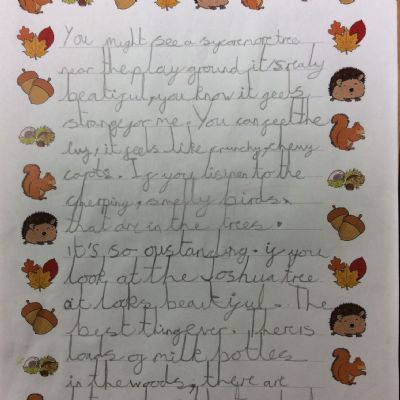 You might see a sycoremore tree
near the play ground it's realy
beatiful, you know it geels
strange for me. You can feel the
Ivy, it feels like crunchy, chewy
capots. If you lispen to the
cherping, smelly birds,
that are in the trees.
it's so oustanding. if you
look at the Joshua tree
it looks beautiful. The
best thing ever. There is
loads of milk bottles
in the woods, there are